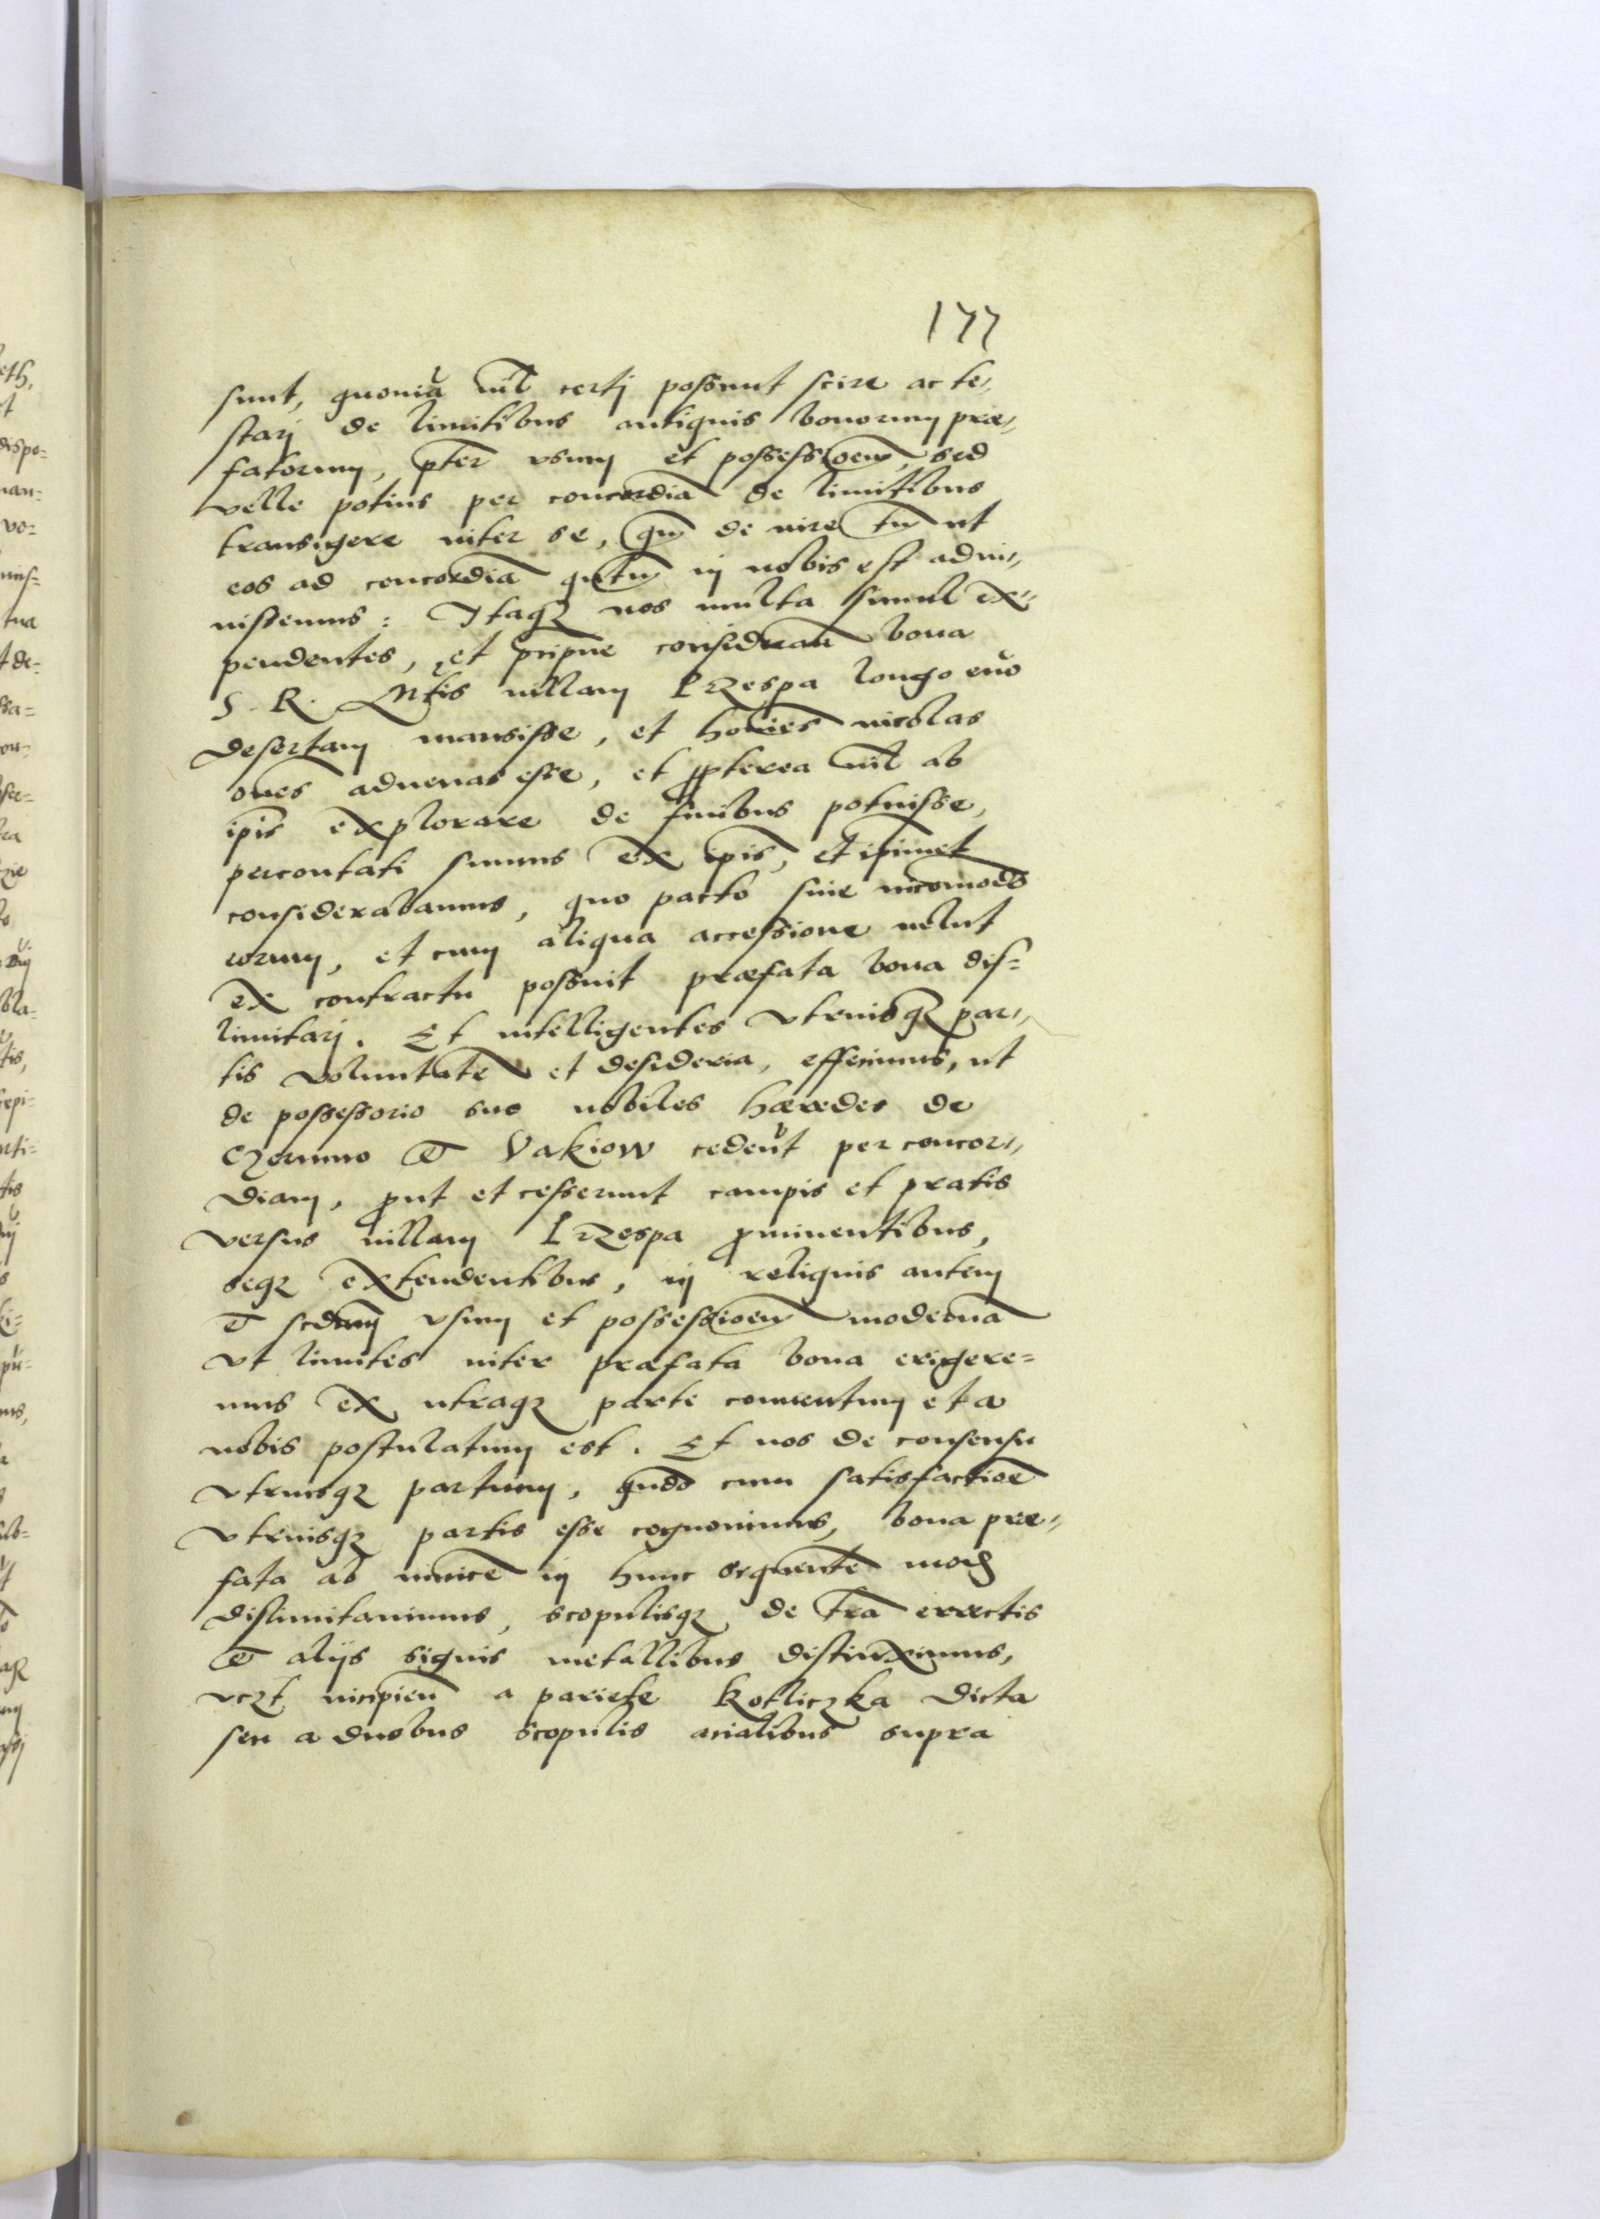 177
sunt, quoniā nil certj possunt scire ac te⸗
starj de limitibus antiquis bonorum præ⸗
fatorum, pter vsum et possessioem, sed
velle potius per concordiā de limitibus
transigere inter se, qm de iure tm ut
eos ad concordiā qntm in nobis est admi⸗
nissemus: Itaqz nos multa simul ex⸗
pendentes, et pcipue consideran bona
S. R. Mtis villam Przespa longo euo
desertam mansisse, et hoies incolas
oes aduenas esse, et ppterea nil ab
ipis explorare de finibus potuisse,
percontati sumus ex ipis, et ipimet
considerabamus, quo pacto sine incomodo
eorum, et cum aliqua accessione uelut
ex contractu possint præfata bona dis⸗
limitarj. Et intelligentes vtriusqz par⸗
tis voluntatē et desideria, effecimus, ut
de possessorio suo nobiles hæredes de
Czernno et Vakiow cederēt per concor⸗
diam, put et cesserunt campis et pratis
versus villam Przespa pminentibus,
seqz extendentibus, in reliquis autem
et scdum vsum et possessioem modernā
vt limites inter præfata bona erigere⸗
mus ex utraqz parte conuentum et a
nobis postulatum est. Et nos de consensu
vtriusqz partium, qndo cum satisfactioe
vtriusqz partis esse cognouimus, bona præ⸗
fata ab inuicē in hunc sequentē mod
dislimitauimus, scopulisqz de tra erectis
et alijs signis metallibus distinximus,
vczt incipien a pariete Kotliczka dicta
seu a duobus scopulis acialibus supra